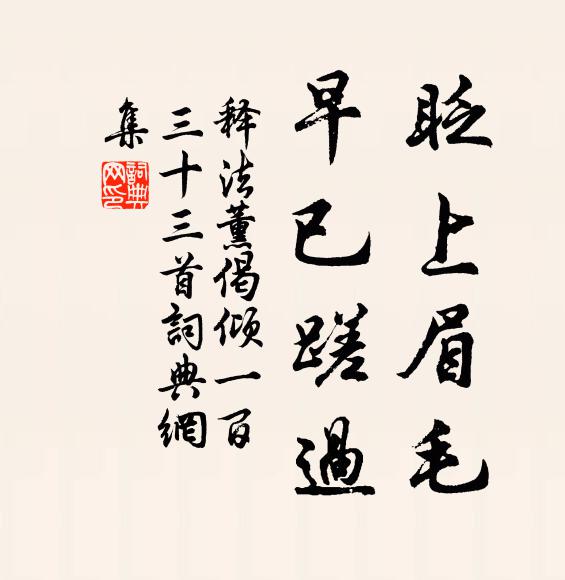 眨上眉毛
早已蹉過
释法薰偈傾一百
三十三首詞典網
集
詞典网印